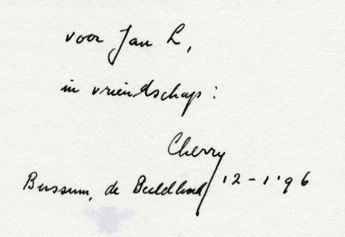 voor Jan L,
in vriendschap:
Cherry
Bussum, de Beeldhoek 12-1-'96